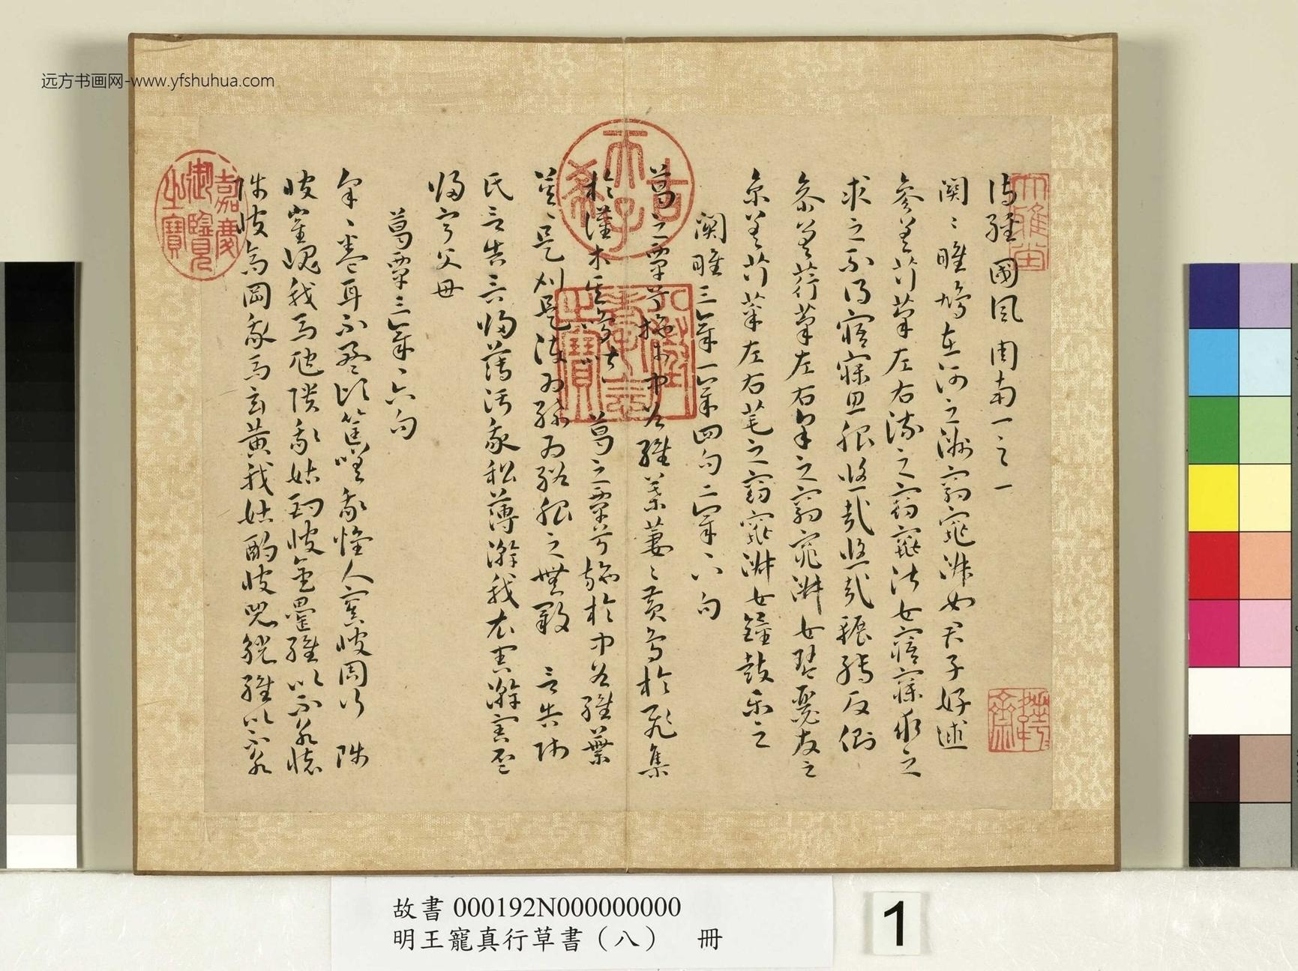 远方书画网-www.yfshuhua.com
诗經國風周南一之一
關〻雎鳩在河之洲窈窕淑女君子好逑
參差荇菜左右流之窈窕淑女寤寐求之
求之不得寤寐思服悠哉悠哉輾轉反側
參差荇菜左右采之窈窕淑女琴瑟友之
參差荇菜左右芼之窈窕淑女鐘鼓樂之
關雎三章一章四句二章八句
葛之覃兮施于中谷維葉萋〻黃鳥于飛集
于灌木其鳴喈〻 葛之覃兮施于中谷維葉
莫〻是刈是濩為絺為綌服之無斁 言告師
氏言告言歸薄污我私薄澣我衣害澣害否
歸寧父母
葛覃三章〻六句
采〻卷耳不盈頃筐嗟我懷人寘彼周行 陟
彼崔嵬我馬虺隤我姑酌彼金罍維以不永懷
陟彼高岡我馬玄黃我姑酌彼兕觥維以不永
嘉慶御覽之寶
古希天子
故書 000192N000000000
明王寵真行草書（八） 冊
1